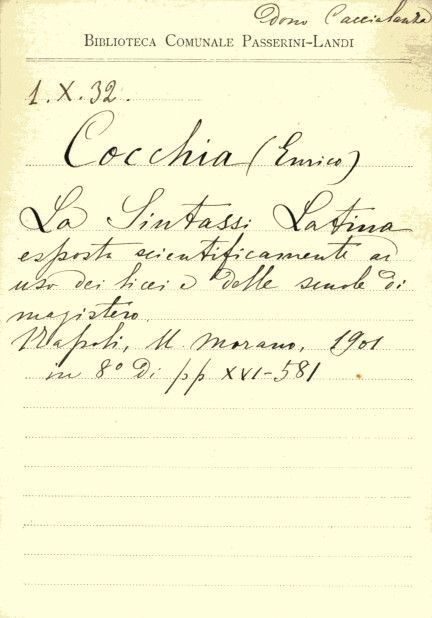 Dono Caccialanza
BIBLIOTECA COMUNALE PASSERINI-LANDI
1.X.32.
Cocchia (Enrico)
La Sintassi Latina
esposta scientificamente ad
uso dei licei e delle scuole di
magistero.
Napoli, M. Morano, 1901
in 8° di pp XVI-581